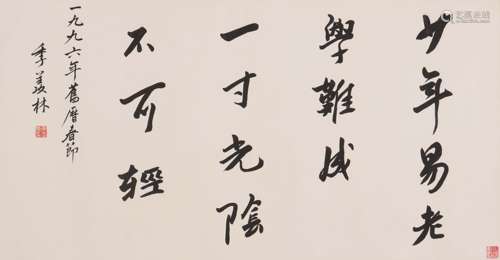 少年易老
學難成
一寸光陰
不可輕
一九九六年舊曆春節
季羨林